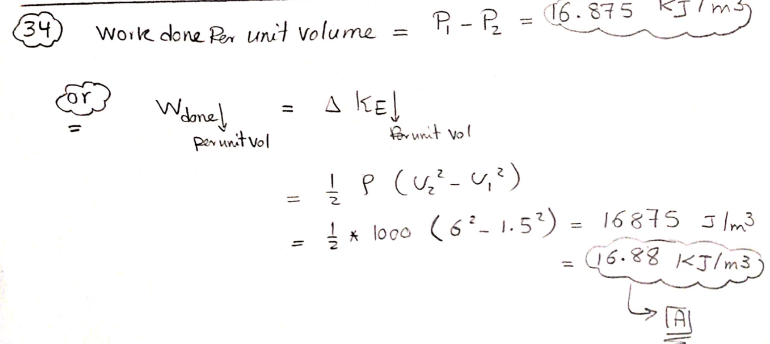 34 Work done Per unit volume = P₁ - P₂ = 16.875 KJ/m3
or W done↓ per unit vol = Δ KE↓ Per unit vol
= 1/2 ρ (v₂² - v₁²)
= 1/2 * 1000 (6² - 1.5²) = 16875 J/m³
= 16.88 KJ/m3
A